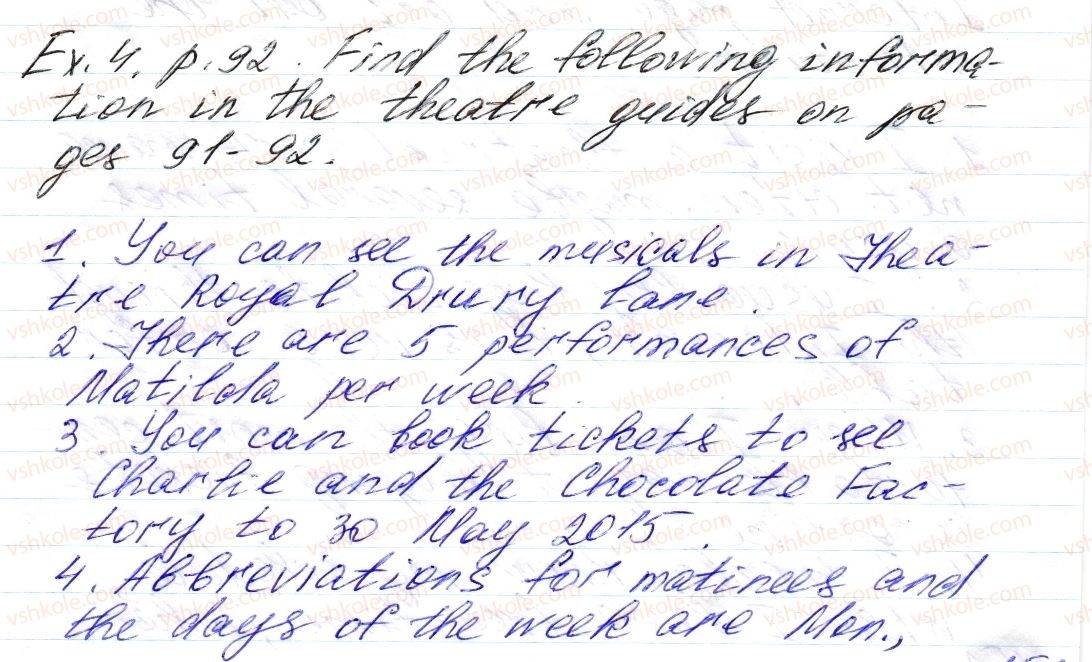 Ex. 4. p. 92. Find the following informa-
tion in the theatre guides on pa-
ges 91-92.
1. You can see the musicals in Thea-
tre Royal Drury Lane.
2. There are 5 performances of
Matilda per week.
3. You can book tickets to see
Charlie and the Chocolate Fac-
tory to 30 May 2015.
4. Abbreviations for matinees and
the days of the week are Mon.,